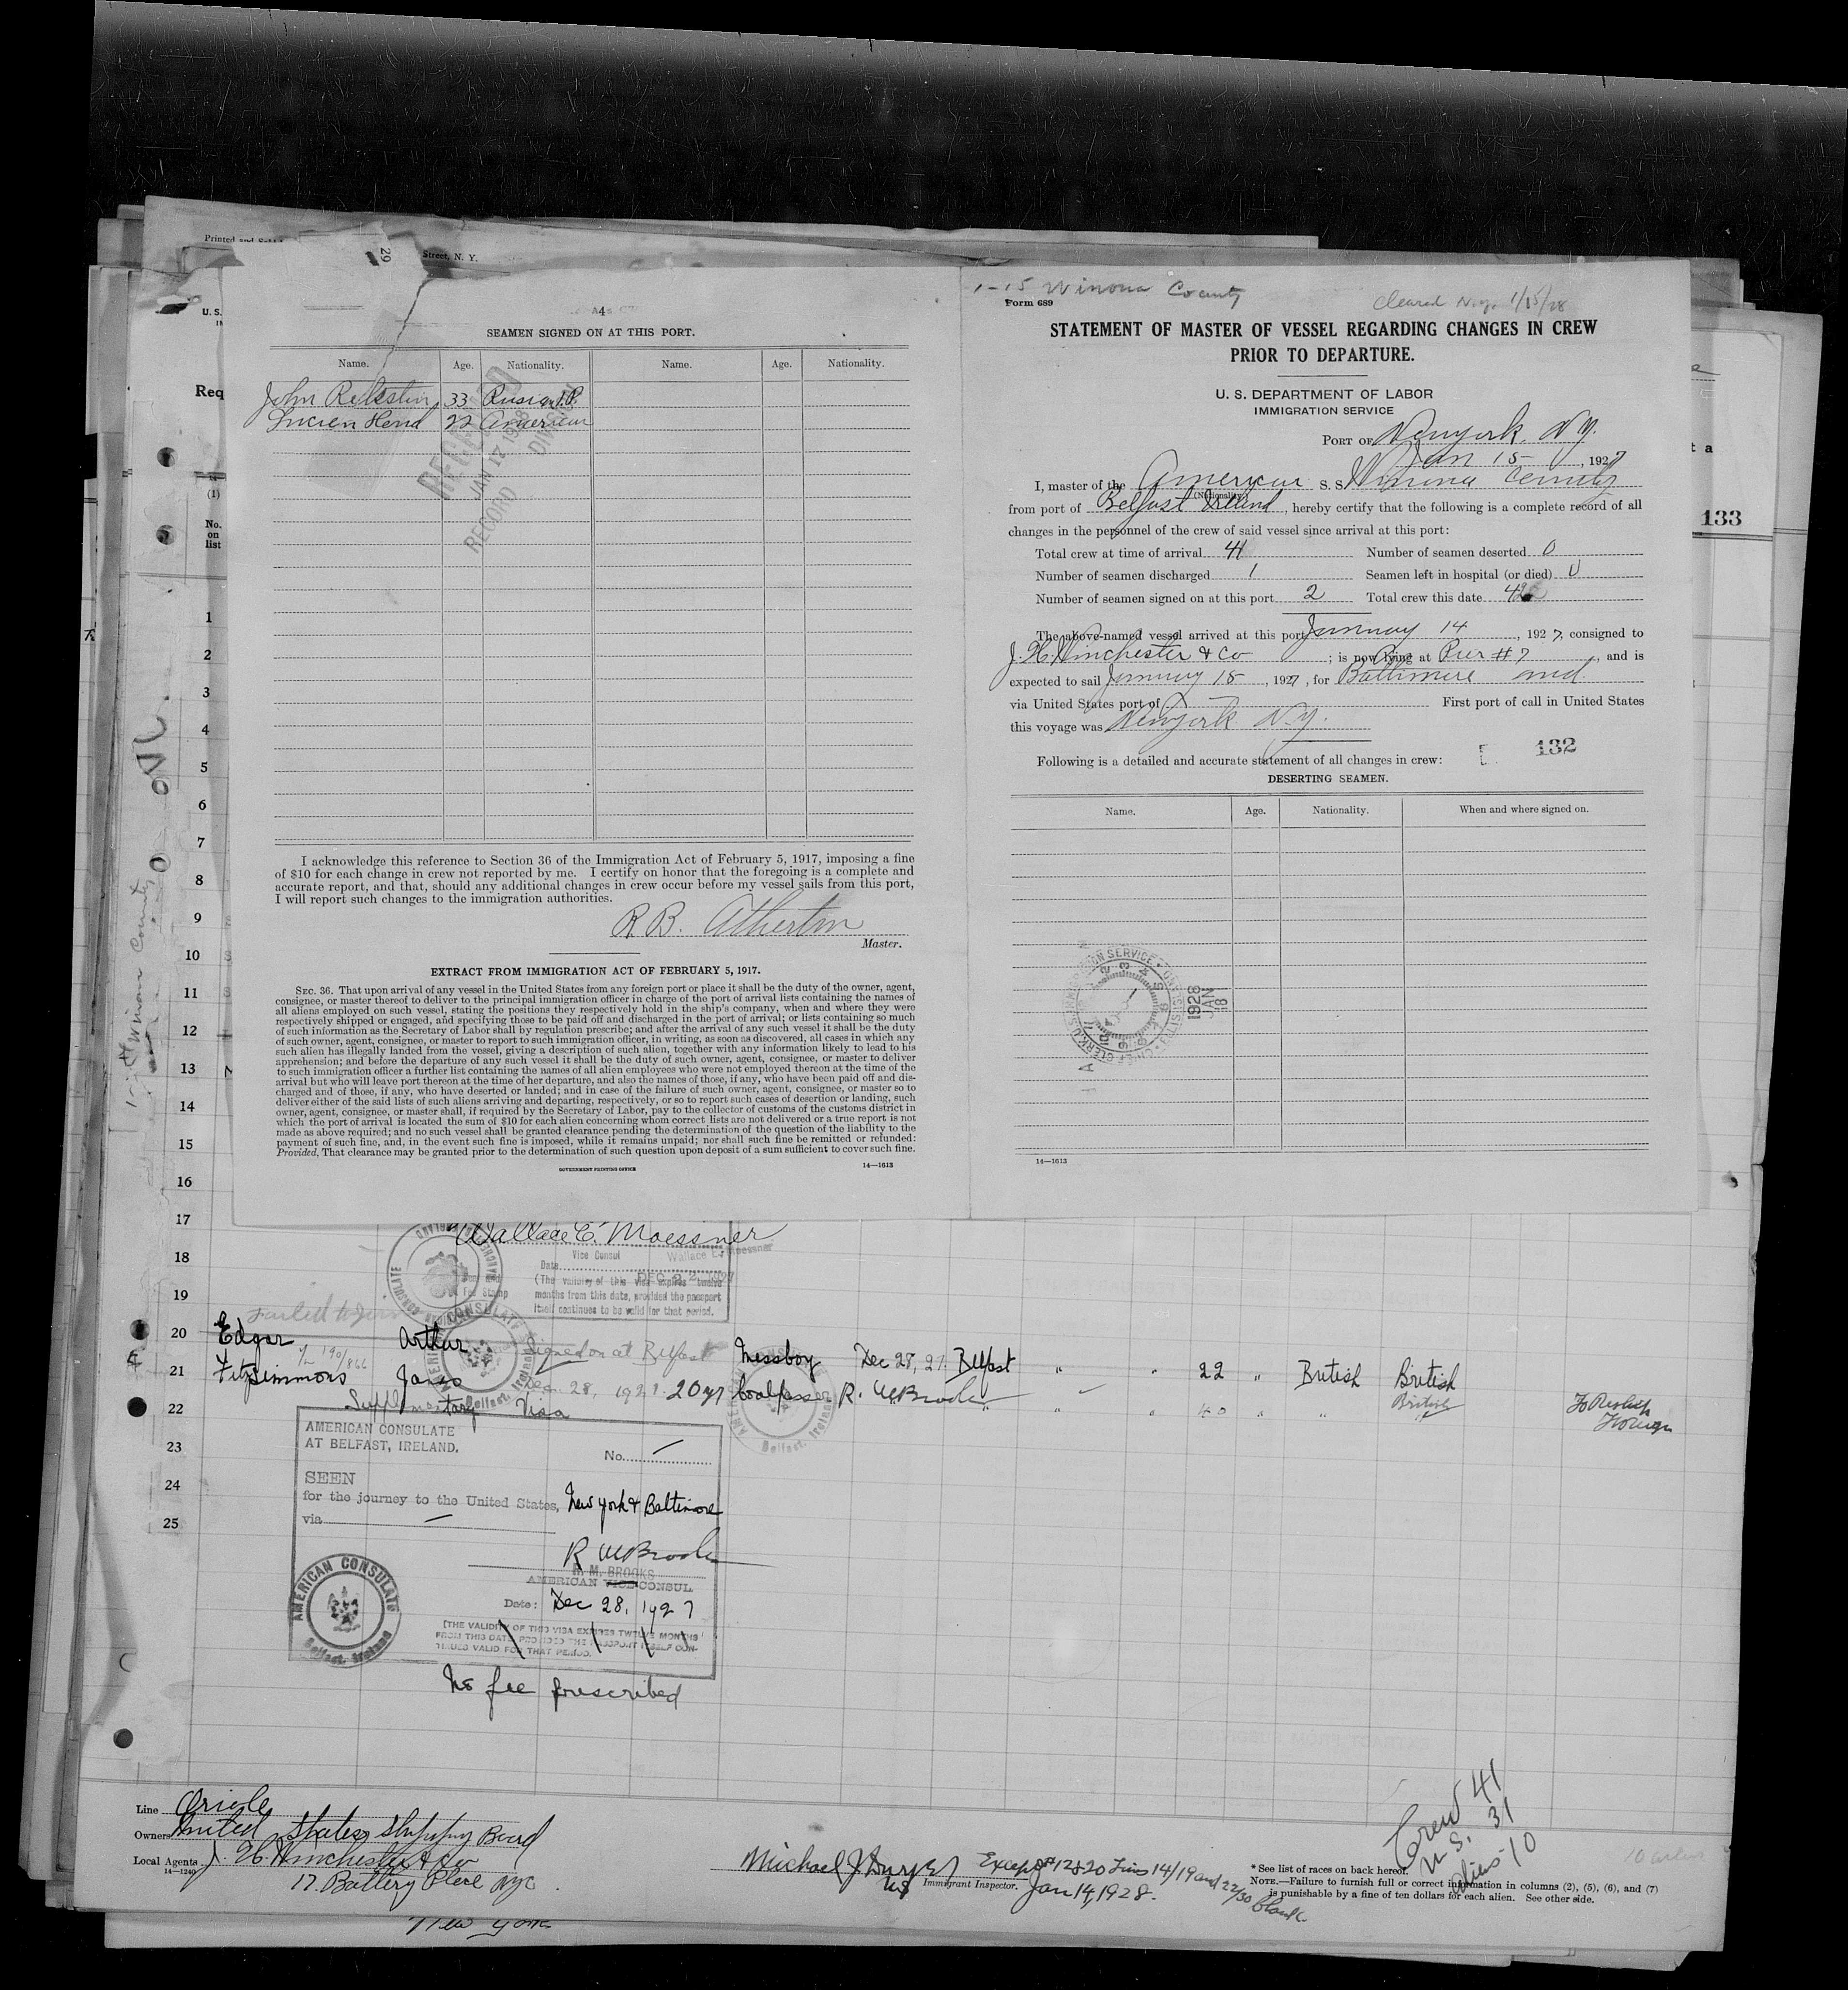 Printed and
Street, N. Y.
29
4
SEAMEN SIGNED ON AT THIS PORT.
Name. Age. Nationality. Name. Age. Nationality.
John 33
Lucien Hend 22 American
JAN 17 1928
RECORD DIVISION
I acknowledge this reference to Section 36 of the Immigration Act of February 5, 1917, imposing a fine
of $10 for each change in crew not reported by me. I certify on honor that the foregoing is a complete and
accurate report, and that, should any additional changes in crew occur before my vessel sails from this port,
I will report such changes to the immigration authorities.
R. B. Atherton
Master.
EXTRACT FROM IMMIGRATION ACT OF FEBRUARY 5, 1917.
SEC. 36. That upon arrival of any vessel in the United States from any foreign port or place it shall be the duty of the owner, agent,
consignee, or master thereof to deliver to the principal immigration officer in charge of the port of arrival lists containing the names of
all aliens employed on such vessel, stating the positions they respectively hold in the ship's company, when and where they were
respectively shipped or engaged, and specifying those to be paid off and discharged in the port of arrival; or lists containing so much
of such information as the Secretary of Labor shall by regulation prescribe; and after the arrival of any such vessel it shall be the duty
of such owner, agent, consignee, or master to report to such immigration officer, in writing, as soon as discovered, all cases in which any
such alien has illegally landed from the vessel, giving a description of such alien, together with any information likely to lead to his
apprehension; and before the departure of any such vessel it shall be the duty of such owner, agent, consignee, or master to deliver
to such immigration officer a further list containing the names of all alien employees who were not employed thereon at the time of the
arrival but who will leave port thereon at the time of her departure, and also the names of those, if any, who have been paid off and dis-
charged and of those, if any, who have deserted or landed; and in case of the failure of such owner, agent, consignee, or master so to
deliver either of the said lists of such aliens arriving and departing, respectively, or so to report such cases of desertion or landing, such
owner, agent, consignee, or master shall, if required by the Secretary of Labor, pay to the collector of customs of the customs district in
which the port of arrival is located the sum of $10 for each alien concerning whom correct lists are not delivered or a true report is not
made as above required; and no such vessel shall be granted clearance pending the determination of the question of the liability to the
payment of such fine, and, in the event such fine is imposed, while it remains unpaid; nor shall such fine be remitted or refunded:
Provided, That clearance may be granted prior to the determination of such question upon deposit of a sum sufficient to cover such fine.
GOVERNMENT PRINTING OFFICE 14—1613
1-15 Winona County
Form 689
Cleared N.Y. 1/15/28
STATEMENT OF MASTER OF VESSEL REGARDING CHANGES IN CREW
PRIOR TO DEPARTURE.
U. S. DEPARTMENT OF LABOR
IMMIGRATION SERVICE
PORT OF Newyork. N.Y.
Jan 15, 1927
I, master of the American S. S. Winona County
(Nationality)
from port of Belfast Ireland, hereby certify that the following is a complete record of all
changes in the personnel of the crew of said vessel since arrival at this port:
Total crew at time of arrival 41 Number of seamen deserted 0
Number of seamen discharged 1 Seamen left in hospital (or died) 0
Number of seamen signed on at this port 2 Total crew this date 42
The above-named vessel arrived at this port January 14, 1927, consigned to
J. H. Winchester & Co; is now lying at Pier #7, and is
expected to sail January 15, 1927, for Baltimore Md.
via United States port of First port of call in United States
this voyage was Newyork N.Y.
Following is a detailed and accurate statement of all changes in crew:
132
DESERTING SEAMEN.
Name. Age. Nationality. When and where signed on.
1928
JAN
18
14—1613
133
U. S.
Req
(1)
No.
on
list
1
2
3
4
5
6
7
8
9
10
11
12
13
14
15
16
17
18
19
20
21
22
23
24
25
Winona County
Wallace E. Moessner
Vice Consul
Date
(The validity of this visa expires twelve
months from this date, provided the passport
itself continues to be valid for that period.
Failed to join
Edgar Arthur Signed on at Belfast Messboy Dec 28, 27. Belfast " " 22 " British British
Fitzsimmons James Dec. 28, 1927. 20 yr Coalpasser R. M. Brooks " " 40 " " British
Supplementary Visa
To Reship
Foreign
AMERICAN CONSULATE
AT BELFAST, IRELAND.
No.
SEEN
for the journey to the United States, New York & Baltimore
via
R M Brooks
R. M. BROOKS
AMERICAN VICE CONSUL
Date: Dec 28, 1927
[THE VALIDITY OF THIS VISA EXPIRES TWELVE MONTHS
FROM THIS DATE PROVIDED THE PASSPORT ITSELF CON-
TINUES VALID FOR THAT PERIOD.
AMERICAN CONSULATE
Belfast, Ireland
No fee prescribed
Line Oriole
Owners United States Shipping Board
Local Agents J. H. Winchester & Co
14—1240
17. Battery Place NYC
Immigrant Inspector.
Jan 14, 1928.
Crew 41
U.S. 31
Aliens 10
10 aliens
* See list of races on back hereof.
NOTE.—Failure to furnish full or correct information in columns (2), (5), (6), and (7)
is punishable by a fine of ten dollars for each alien. See other side.
New York